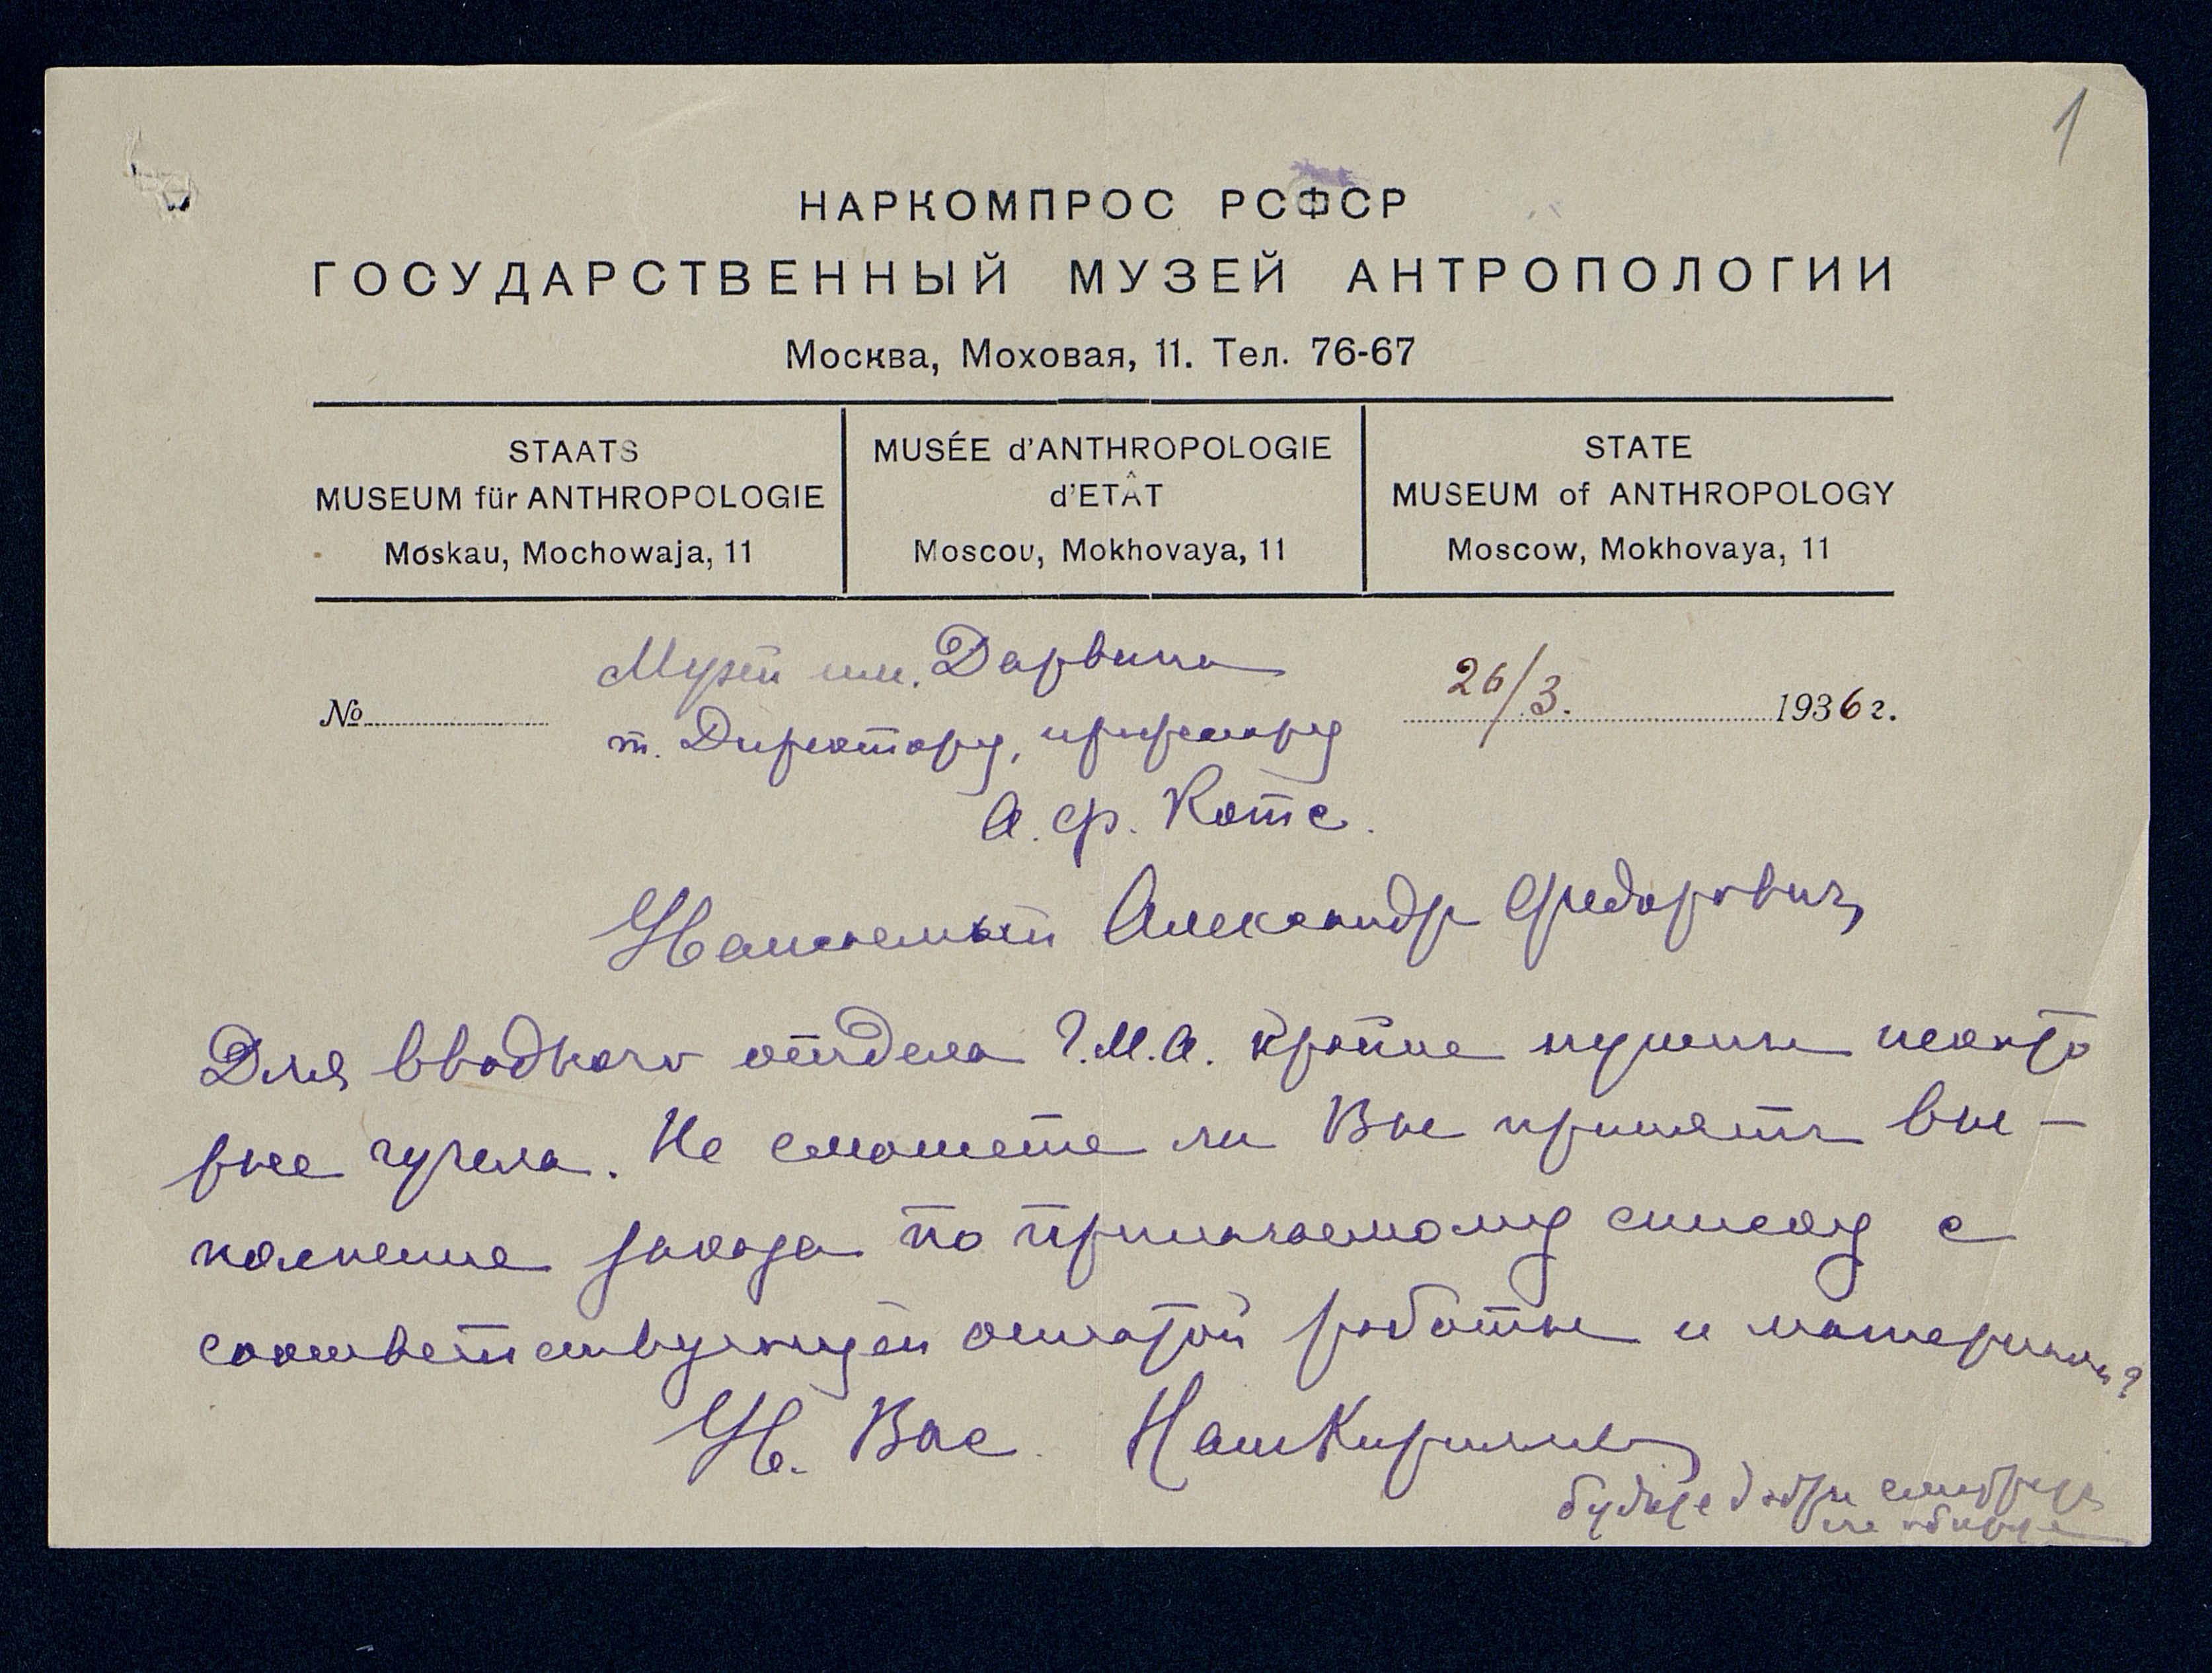 1
НАРКОМПРОС РСФСР
ГОСУДАРСТВЕННЫЙ МУЗЕЙ АНТРОПОЛОГИИ
Москва, Моховая, 11. Тел. 76-67
STAATS
MUSEUM für ANTHROPOLOGIE
Moskau, Mochowaja, 11
MUSÉE d'ANTHROPOLOGIE
d'ETÂT
Moscou, Mokhovaya, 11
STATE
MUSEUM of ANTHROPOLOGY
Moscow, Mokhovaya, 11
Музей им. Дарвина
№ 26/3. 1936 г.
т. Директору, профессору
А. Ф. Котс.
Уважаемый Александр Федорович,
Для вводного отдела Г.М.А. крайне нужны некото
рые чучела. Не сможете ли Вы принять вы-
полнение заказа по прилагаемому списку с
соответствующей оплатой работы и материала?
Ув. Вас